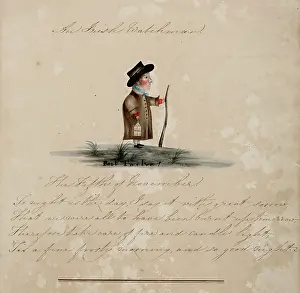 An Irish Watchman
Past
The Fifth of November
To night is the day, I say it with great sorrow
That we were all to have been burnt up tomorrow
Therefore take care of fire and candle light
Tis a fine frosty morning, and so good night